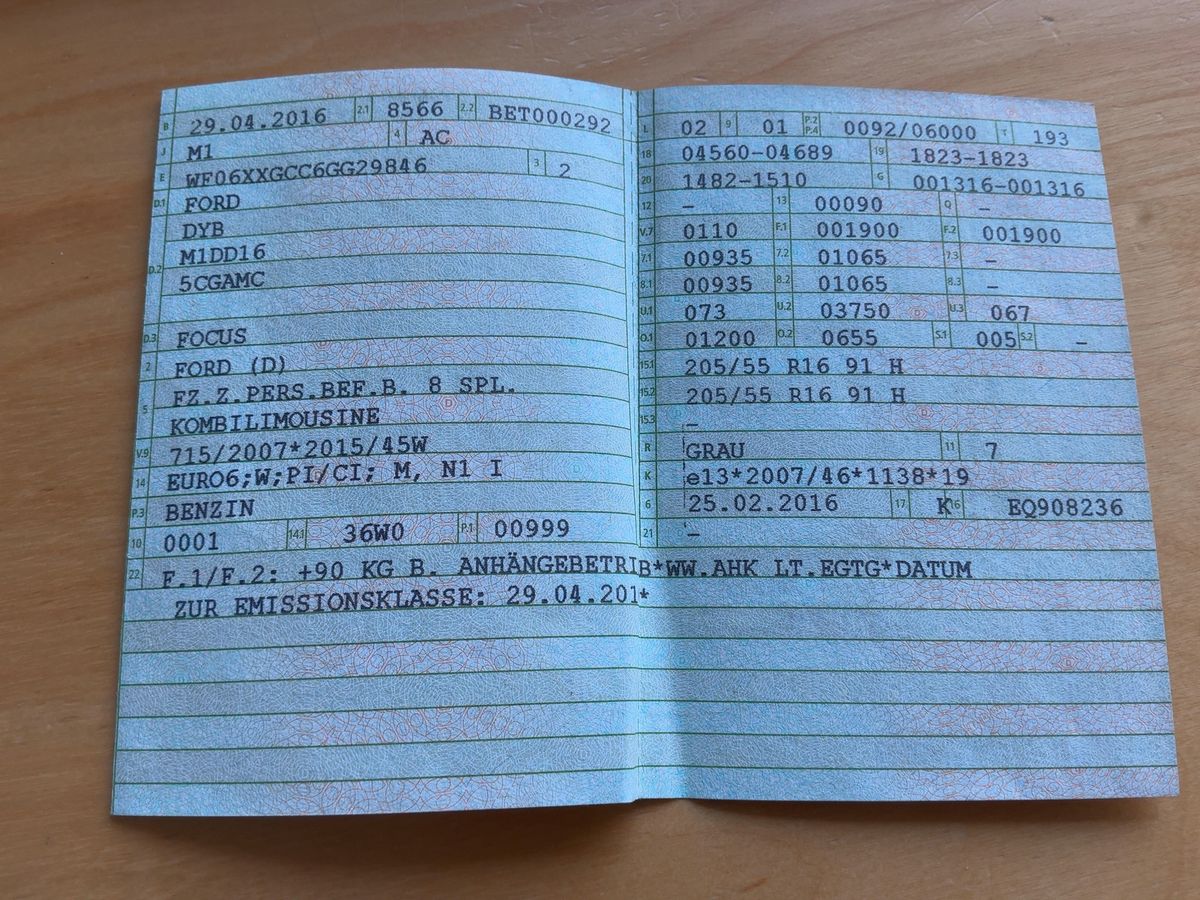 B 29.04.2016 2.1 8566 2.2 BET000292
J M1 4 AC
E WF06XXGCC6GG29846 3 2
D.1 FORD
DYB
D.2 M1DD16
5CGAMC
D.3 FOCUS
2 FORD (D)
FZ.Z.PERS.BEF.B. 8 SPL.
5 KOMBILIMOUSINE
V.9 715/2007*2015/45W
14 EURO6;W;PI/CI; M, N1 I
P.3 BENZIN
10 0001 14.1 36W0 P.1 00999
L 02 9 01 P.2 P.4 0092/06000 T 193
18 04560-04689 19 1823-1823
20 1482-1510 G 001316-001316
12 - 13 00090 Q -
V.7 0110 F.1 001900 F.2 001900
7.1 00935 7.2 01065 7.3 -
8.1 00935 8.2 01065 8.3 -
U.1 073 U.2 03750 U.3 067
O.1 01200 O.2 0655 S.1 005 S.2 -
15.1 205/55 R16 91 H
15.2 205/55 R16 91 H
15.3 -
R GRAU 11 7
K e13*2007/46*1138*19
6 25.02.2016 17 K 16 EQ908236
21 -
22 F.1/F.2: +90 KG B. ANHÄNGEBETRIB*WW.AHK LT.EGTG*DATUM
ZUR EMISSIONSKLASSE: 29.04.201*